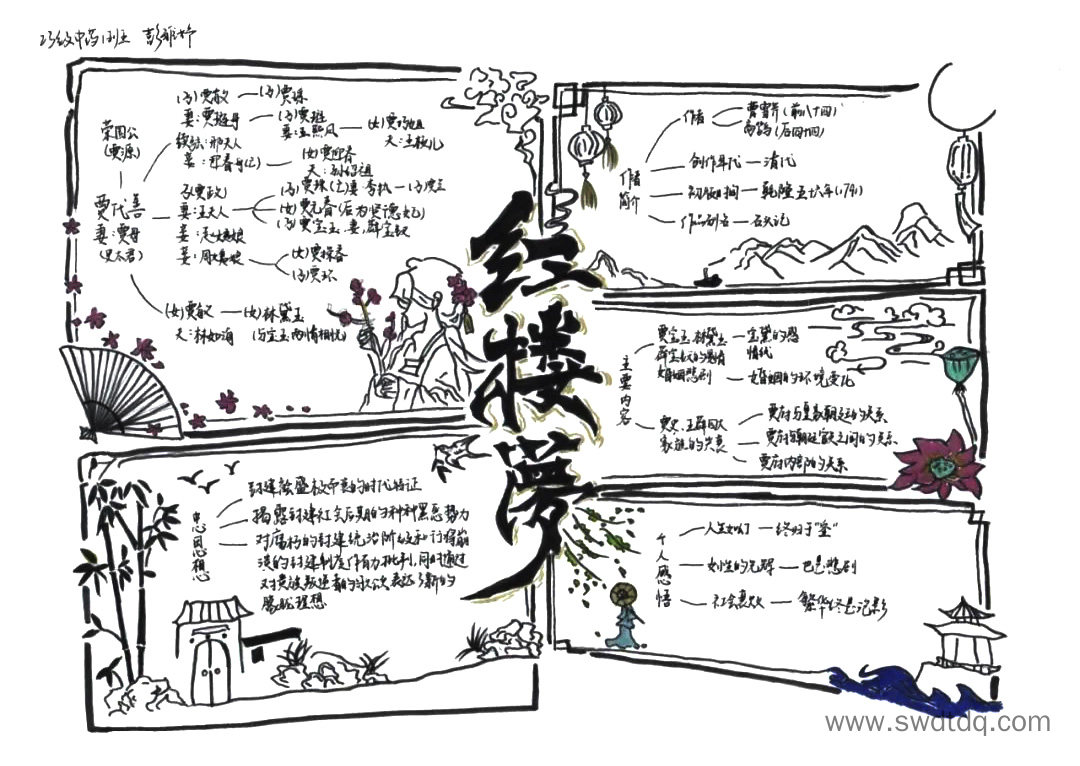 23级中药1班 彭雅婷
荣国公
(贾源)
贾代善
妻:贾母
(史太君)
(子)贾赦 — (子)贾琮
妾:贾琏母 — (子)贾琏
妻:王熙凤 — (女)贾巧姐
夫:王板儿
续弦:邢夫人
妾:迎春母(亡) — (女)贾迎春
夫:孙绍祖
子贾政
妻:王夫人
妾:赵姨娘
妾:周姨娘
(子)贾珠(亡)妻:李纨 — (子)贾兰
(女)贾元春(后为贤德妃)
(子)贾宝玉,妻,薛宝钗
(女)贾探春
(子)贾环
(女)贾敏 — (女)林黛玉
夫:林如海 (与宝玉两情相悦)
红楼梦
作者简介
作者
曹雪芹(前八十回)
高鹗(后四十回)
创作年代 — 清代
初版时间 — 乾隆五十六年(1791)
作品别名 — 石头记
主要内容
贾宝玉,林黛玉
薛宝钗的爱情
婚姻悲剧
宝黛的感
情线
婚姻的环境变化
贾史、王薛四大
家族的兴衰
贾府与皇家朝廷的关系
贾府内部的关系
中心思想
封建社会盛极而衰的时代特征
揭露封建社会后期的种种黑恶势力
对腐朽的封建统治阶级和行将崩
溃的封建制度作有力批判,同时通过
对贵族叛逆者的歌颂表达了新的
朦胧理想
个人感悟
终归于"空"
已是悲剧
社会衰败 — 繁华终是泡影
www.swdtdq.com